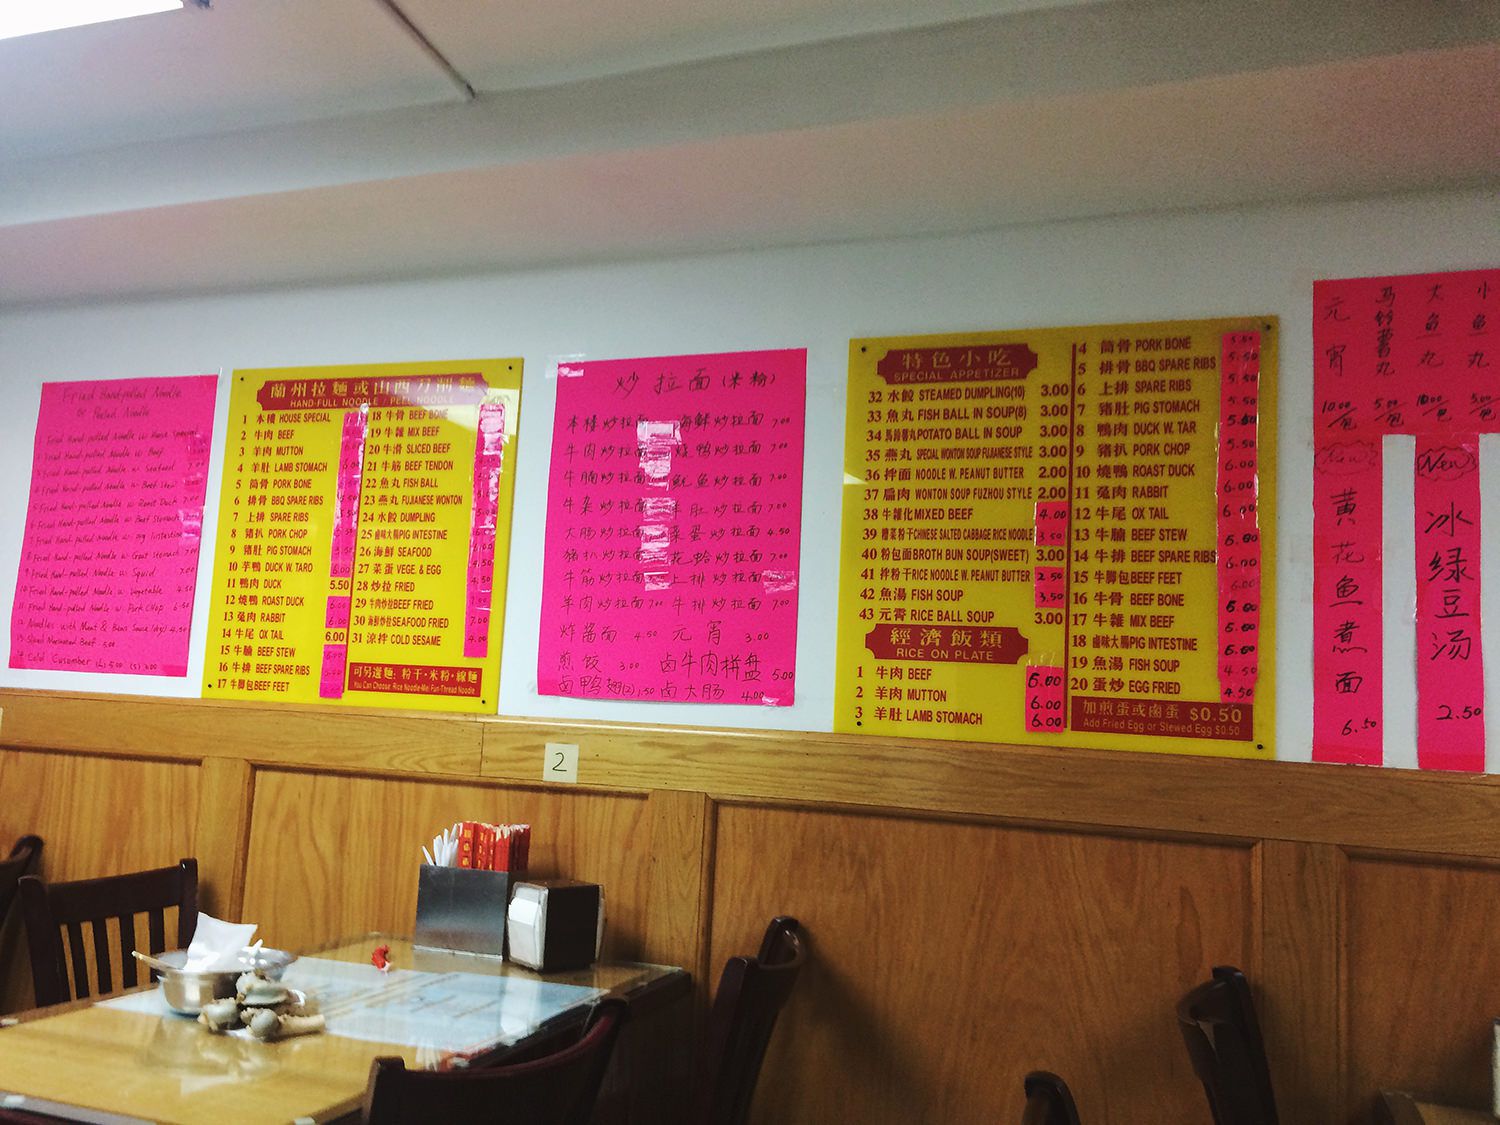 Fried Hand-pulled Noodle
or Peeled Noodle
1 Fried Hand-pulled Noodle w. House Special
2 Fried Hand-pulled Noodle w. Beef
3 Fried Hand-pulled Noodle w. Seafood 7.00
4 Fried Hand-pulled Noodle w. Beef Stew
5 Fried Hand-pulled Noodle w. Roast Duck 7.00
6 Fried Hand-pulled Noodle w. Beef Stomach
7 Fried Hand-pulled Noodle w. pig Intestine
8 Fried Hand-pulled Noodle w. Goat Stomach 7.00
9 Fried Hand-pulled Noodle w. Squid 7.00
10 Fried Hand-pulled Noodle w. Vegetable 4.50
11 Fried Hand-pulled Noodle w. Pork Chop 6.50
12 Noodles with Meat & Bean Sauce (dry) 4.50
13 Sliced Marinated Beef 5.00
14 Cold Cucumber (L) 5.00 (S) 3.00
蘭州拉麵或山西刀削麵
HAND-FULL NOODLE / PEEL NOODLE
1 本樓 HOUSE SPECIAL
2 牛肉 BEEF
3 羊肉 MUTTON
4 羊肚 LAMB STOMACH
5 筒骨 PORK BONE
6 排骨 BBQ SPARE RIBS
7 上排 SPARE RIBS
8 豬扒 PORK CHOP
9 豬肚 PIG STOMACH
10 芋鴨 DUCK W. TARO 6.00
11 鴨肉 DUCK 5.50
12 燒鴨 ROAST DUCK 6.00
13 兔肉 RABBIT 6.00
14 牛尾 OX TAIL 6.00
15 牛腩 BEEF STEW
16 牛排 BEEF SPARE RIBS
17 牛脚包 BEEF FEET
18 牛骨 BEEF BONE
19 牛雜 MIX BEEF
20 牛滑 SLICED BEEF
21 牛筋 BEEF TENDON
22 魚丸 FISH BALL
23 燕丸 FUJIANESE WONTON
24 水餃 DUMPLING
25 鹵味大腸 PIG INTESTINE
26 海鮮 SEAFOOD
27 菜蛋 VEGE. & EGG
28 炒拉 FRIED
29 牛肉炒拉 BEEF FRIED
30 海鮮炒拉 SEAFOOD FRIED 7.00
31 涼拌 COLD SESAME 4.00
可另選麵：粉干·米粉·線麵
You Can Choose: Rice Noodle-Mei Fun-Thread Noodle
炒拉面 (米粉)
本樓炒拉面 海鮮炒拉面 7.00
牛肉炒拉面 烧鸭炒拉面 7.00
牛腩炒拉面 魷鱼炒拉面 7.00
牛杂炒拉面 羊肚炒拉面 7.00
大肠炒拉面 菜蛋炒拉面 4.50
猪扒炒拉面 花蛤炒拉面 7.00
牛筋炒拉面 上排炒拉面 7.00
羊肉炒拉面 7.00 牛排炒拉面 7.00
炸酱面 4.50 元宵 3.00
煎饺 3.00 卤牛肉拼盘 5.00
卤鸭翅(2) 1.50 卤大肠 4.00
2
特色小吃
SPECIAL APPETIZER
32 水餃 STEAMED DUMPLING(10) 3.00
33 魚丸 FISH BALL IN SOUP(8) 3.00
34 馬鈴薯丸 POTATO BALL IN SOUP 3.00
35 燕丸 SPECIAL WONTON SOUP FUJIANESE STYLE 3.00
36 拌面 NOODLE W. PEANUT BUTTER 2.00
37 扁肉 WONTON SOUP FUZHOU STYLE 2.00
38 牛雜化 MIXED BEEF 4.00
39 榨菜粉干 CHINESE SALTED CABBAGE RICE NOODLE 3.50
40 粉包面 BROTH BUN SOUP(SWEET) 3.00
41 拌粉干 RICE NOODLE W. PEANUT BUTTER 2.50
42 魚湯 FISH SOUP 3.50
43 元霄 RICE BALL SOUP 3.00
經濟飯類
RICE ON PLATE
1 牛肉 BEEF 5.00
2 羊肉 MUTTON 6.00
3 羊肚 LAMB STOMACH 6.00
4 筒骨 PORK BONE 5.50
5 排骨 BBQ SPARE RIBS 5.50
6 上排 SPARE RIBS 5.50
7 豬肚 PIG STOMACH 5.50
8 鴨肉 DUCK W. TAR 5.50
9 豬扒 PORK CHOP 5.50
10 燒鴨 ROAST DUCK 6.00
11 兔肉 RABBIT 6.00
12 牛尾 OX TAIL 6.00
13 牛腩 BEEF STEW 5.00
14 牛排 BEEF SPARE RIBS 5.50
15 牛脚包 BEEF FEET 6.00
16 牛骨 BEEF BONE 5.00
17 牛雜 MIX BEEF 5.00
18 鹵味大腸 PIG INTESTINE 5.00
19 魚湯 FISH SOUP 4.50
20 蛋炒 EGG FRIED 4.50
加煎蛋或鹵蛋 $0.50
Add Fried Egg or Stewed Egg $0.50
元宵 10.00/包
马铃薯丸 5.00/包
大鱼丸 10.00/包
小鱼丸 5.00/包
New
黄花鱼煮面 6.50
New
冰绿豆汤 2.50